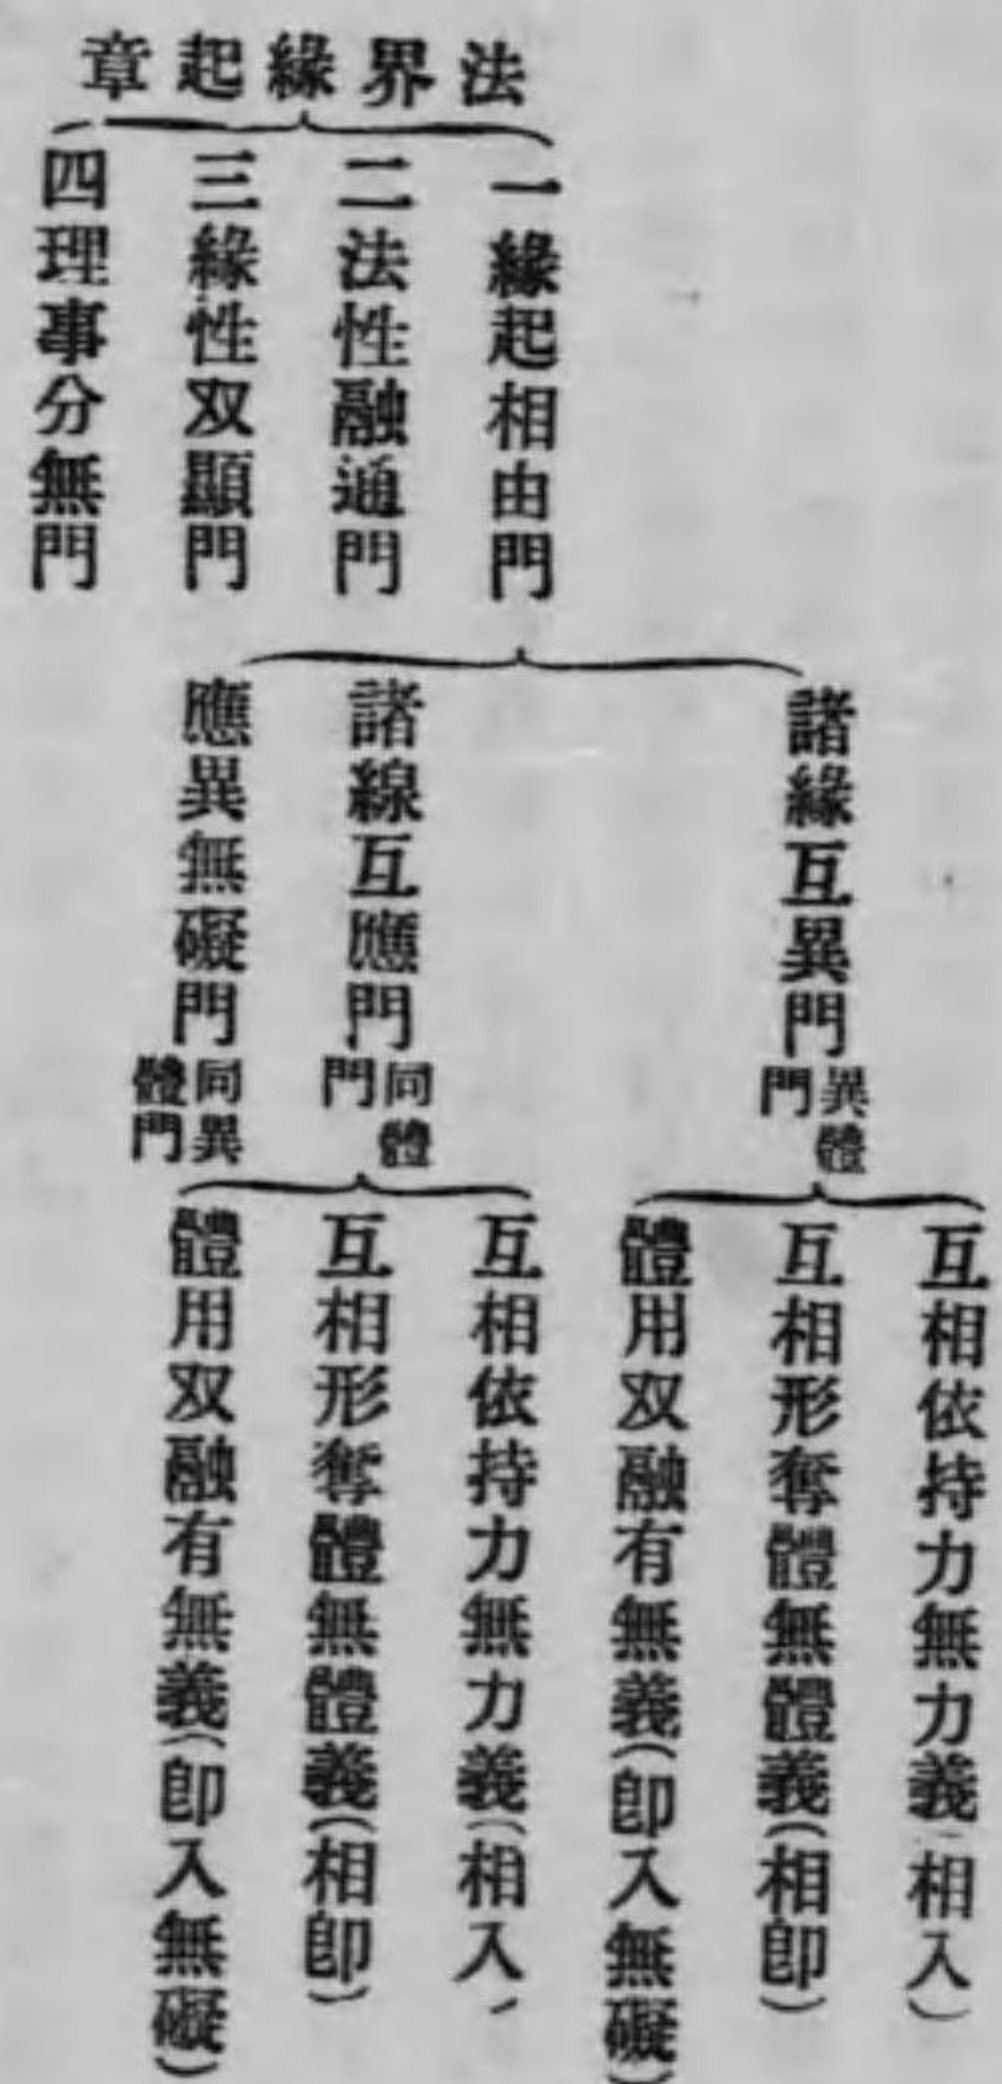 法界緣起章
一緣起相由門
二法性融通門
三緣性双顯門
四理事分無門
諸緣互異門
異體門
諸線互應門
同體門
應異無礙門
同異體門
互相依持力無力義(相入)
互相形奪體無體義(相卽)
體用双融有無義(卽入無礙)
互相依持力無力義(相入)
互相形奪體無體義(相卽)
體用双融有無義(卽入無礙)